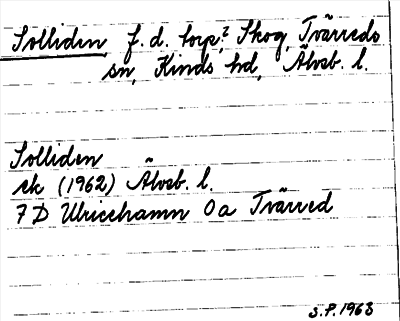 Solliden, f.d. torp? Skog, Tvärreds
sn, Kinds hd, Älvsb. l.
Solliden
ek (1962) Älvsb. l.
7 D Ulricehamn 0a Tvärred
S.P. 1963